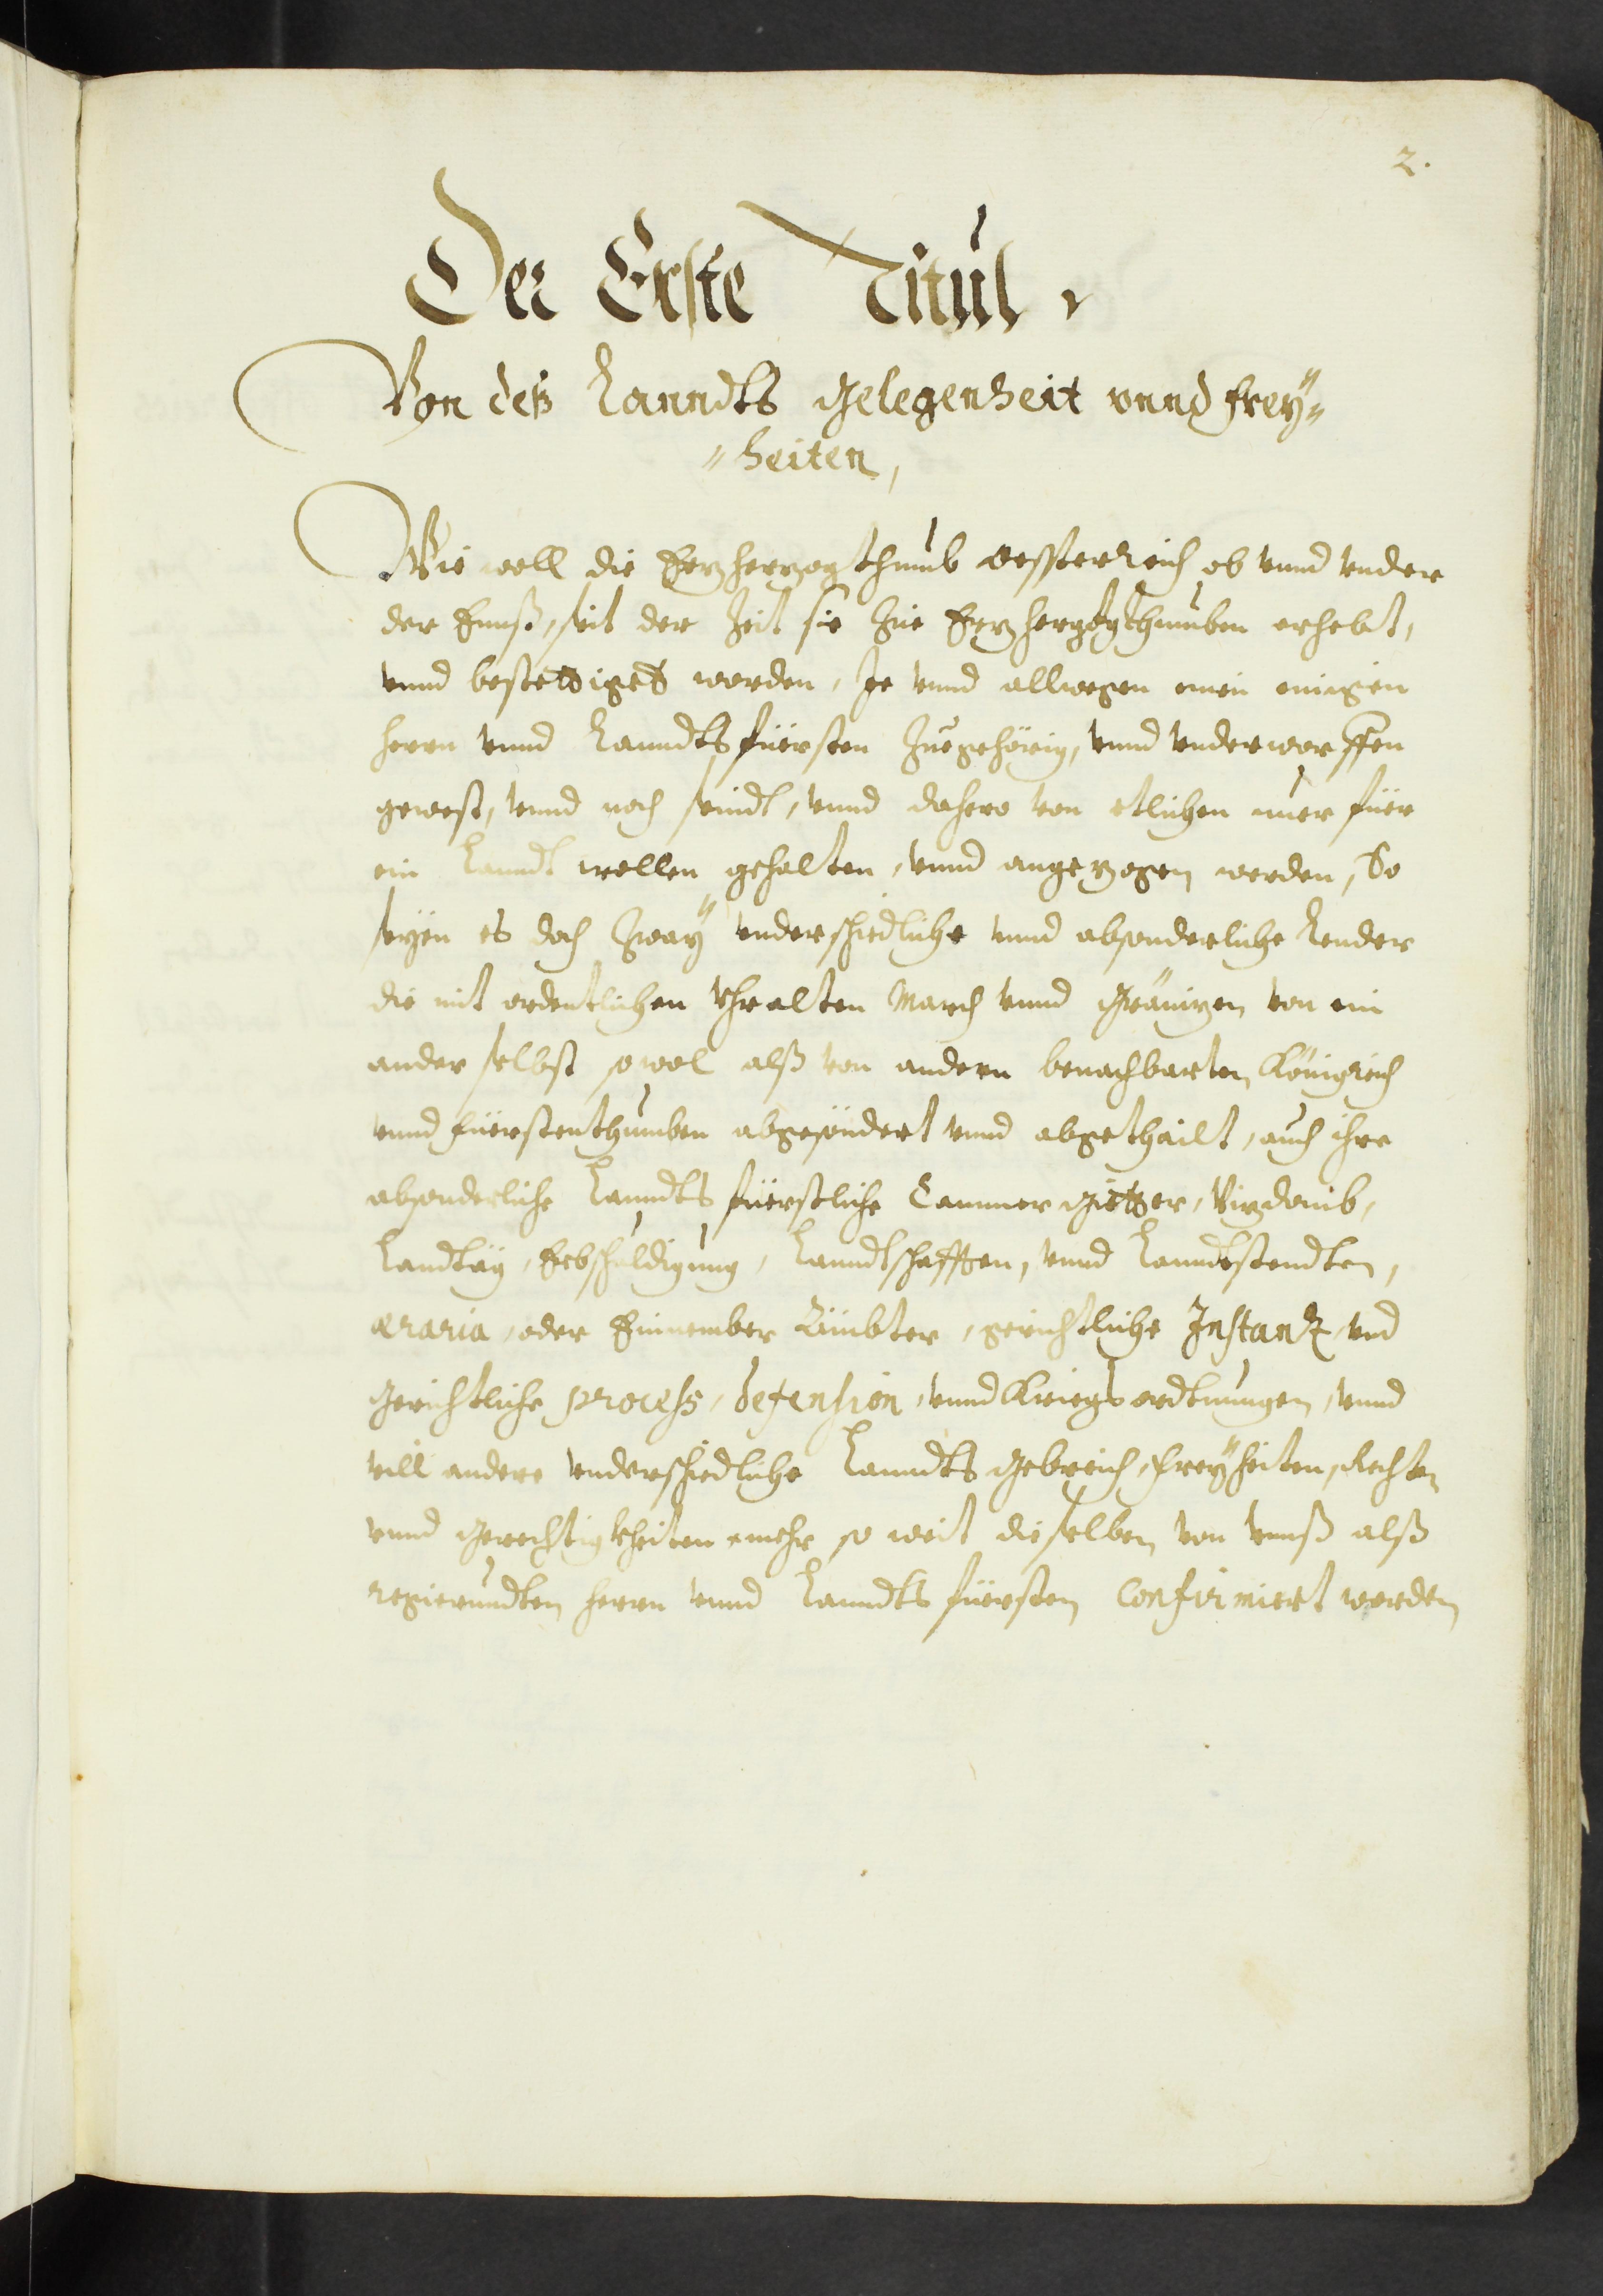 2.
Der Erste Titul,
Von deß Lanndts gelegenheit vnnd frey=
=heiten,
Wie woll die Erzherzogthumb Oessterreich ob vnnd vnder
der Ennß, seit der Zeit sie Zue Erzherzogthumben erhebt,
vnnd bestettiget worden, Je vnnd allwegen einen einigen
herrn vnnd Lanndts fürsten Zuegehörig, vnnd vnderworffen
gewest, vnnd noch seindt, vnnd dahero von etlichen nuer füer
ein Lanndt wellen gehalten, vnnd angezogen werden, So
seyen es doch Zway vnderschidliche vnnd absonderliche Lender
die mit ordentlichen Vhralten March vnnd Gränizen von ein
ander selbst so wol alß von andern benachbarten Königreich
vnnd fürstenthumben abgesöndert vnnd abgethailt, auch ihre
absonderliche Lanndts fürstliche Cammer güetter, Vizdomb,
Landtäg, Erbhuldigung, Lanndtschafften, vnnd Lanndtstendten,
æraria, oder Einnember Ämbter, gerichtliche Instantz, vnd
Gerichtliche process, defension, vnnd Kriegs ordtnungen, vnnd
vill andere vnderschidliche Lanndts gebreich, freyheiten, Rechten
vnnd Gerechtigkheiten mehr so weit dieselben von vnnß alß
regierundten herrn vnnd Lanndts fürsten Confirmiert worden